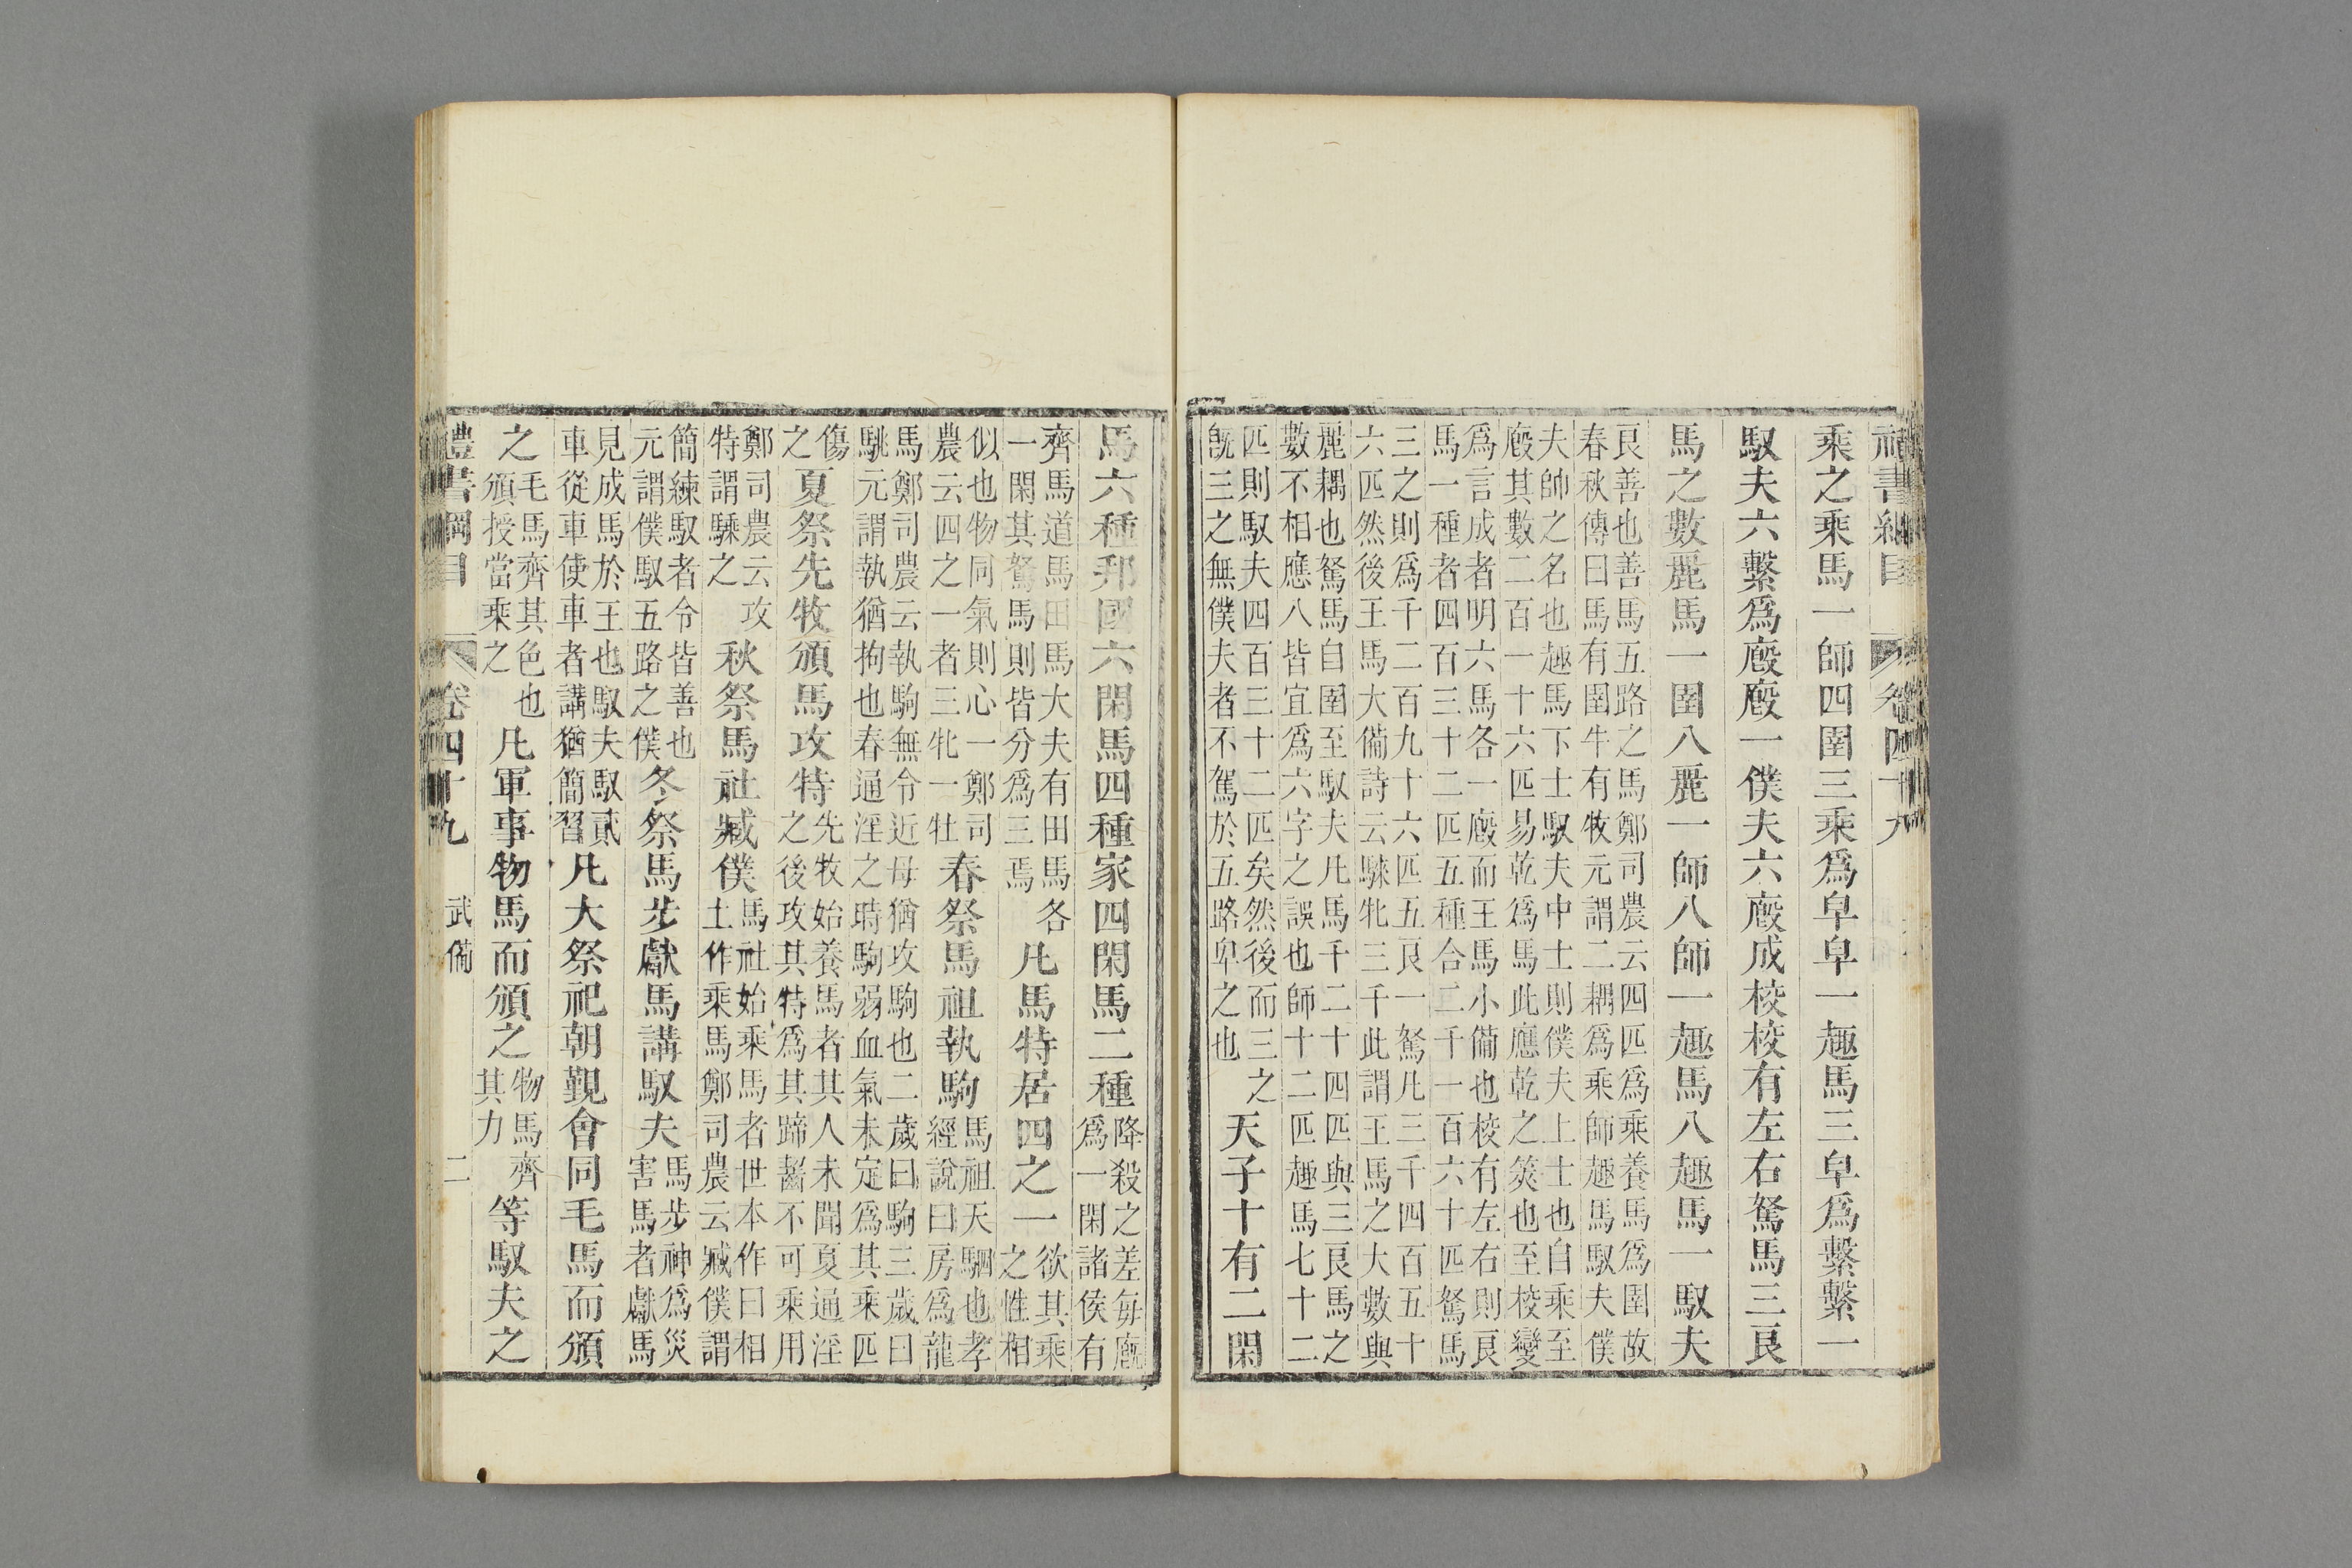 禮書綱目 卷四十九
乘之乘馬一師四圉三乘爲皁皁一趣馬三皁爲繫繫一
馭夫六繫爲廄廄一僕夫六廄成校校有左右駑馬三良
馬之數麗馬一圉八麗一師八師一趣馬八趣馬一馭夫
良善也善馬五路之馬鄭司農云四匹爲乘養馬爲圉故
春秋傳曰馬有圉牛有牧元謂二耦爲乘師趣馬馭夫僕
夫帥之名也趣馬下士馭夫中士則僕夫上士也自乘至
廄其數二百一十六匹易乾爲馬此應乾之筴也至校變
爲言成者明六馬各一廄而王馬小僃也校有左右則良
馬一種者四百三十二匹五種合二千一百六十匹駑馬
三之則爲千二百九十六匹五良一駑凡三千四百五十
六匹然後王馬大僃詩云騋牝三千此謂王馬之大數與
麗耦也駑馬自圉至馭夫凡馬千二十四匹與三良馬之
數不相應八皆宜爲六字之誤也師十二匹趣馬七十二
匹則馭夫四百三十二匹矣然後而三之
旣三之無僕夫者不駕於五路卑之也
天子十有二閑
馬六種邦國六閑馬四種家四閑馬二種
降殺之差每廐
爲一閑諸侯有
齊馬道馬田馬大夫有田馬各
一閑其駑馬則皆分爲三焉
凡馬特居四之一
欲其乘
之性相
似也物同氣則心一鄭司
農云四之一者三牝一牡
春祭馬祖執駒
馬祖天駟也孝
經說曰房爲龍
馬鄭司農云執駒無令近母猶攻駒也二歲曰駒三歲曰
駣元謂執猶拘也春通淫之時駒弱血氣未定爲其乘匹
傷
之
夏祭先牧頒馬攻特
先牧始養馬者其人未聞夏通淫
之後攻其特爲其蹄齧不可乘用
鄭司農云攻
特謂騬之
秋祭馬社臧僕
馬社始乘馬者世本作曰相
土作乘馬鄭司農云臧僕謂
簡練馭者令皆善也
元謂僕馭五路之僕
冬祭馬步獻馬講馭夫
馬步神爲災
害馬者獻馬
見成馬於王也馭夫馭貳
車從車使車者講猶簡習
凡大祭祀朝覲會同毛馬而頒
之
毛馬齊其色也
頒授當乘之
凡軍事物馬而頒之
物馬齊
其力
等馭夫之
禮書綱目 卷四十九 武僃 二